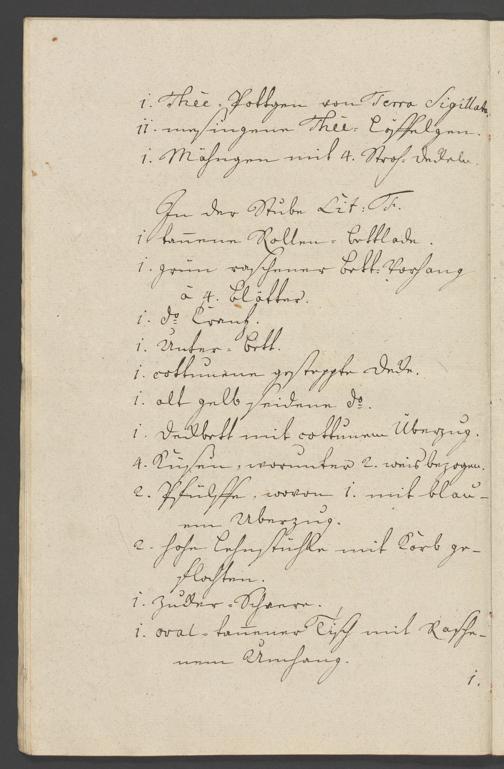 1. Thée-Pottgen von Terra Sigillata.
11. messingene Thée-Löffelgen.
1. Mähngen mit 4. Stroh-deckeln.
In der Stube Lit: F.
1 tannene Rollen-bettlade.
1. grün raschener bett-Vorhang
à 4. blätter.
1. do Crantz.
1. Unter-bett.
1. cottunene gesteppte decke.
1. alt gelb seidene do.
1. deckbett mit cottunem Überzug.
4. Küßen, worunter 2. weis bezogen.
2. Pfülffe, wovon 1. mit blau-
em Uberzug.
2. hohe Lehnstühle mit Korb ge-
flochten.
1. Zucker-Scheere.
1. oval-tannener Tisch mit Rasche-
nem Umhang.
1.